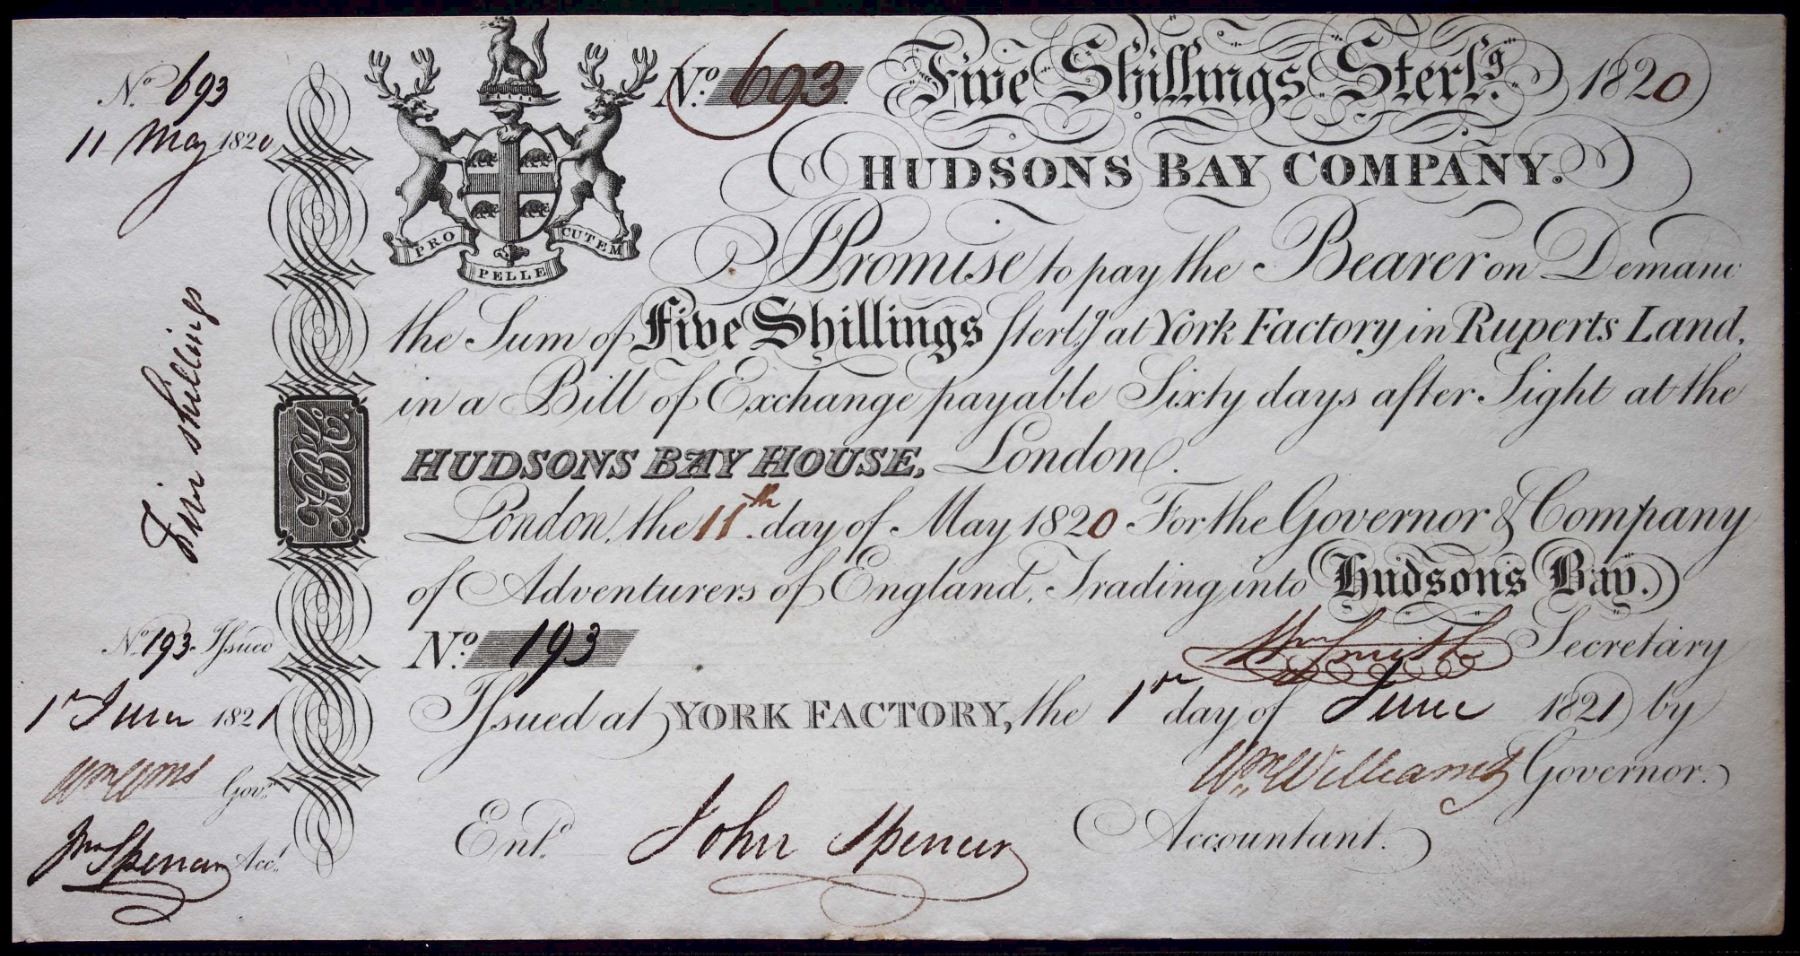 No. 693
11 May 1820
Five shillings
HBC.
No. 193. Issued
1st June 1821
Wm Wms Govr.
Jno Spencer Acct.
PRO PELLE CUTEM
No. 693. Five Shillings Sterlg. 1820
HUDSONS BAY COMPANY.
I Promise to pay the Bearer on Demand
the Sum of Five Shillings Sterlg at York Factory in Ruperts Land,
in a Bill of Exchange payable Sixty days after Sight at the
HUDSONS BAY HOUSE, London.
London, the 11th day of May 1820 For the Governor & Company
of Adventurers of England, Trading into Hudsons Bay.
No. 193
Wm Smith Secretary
Issued at YORK FACTORY, the 1st day of June 1821 by
Wm. Williams Governor.
Entd. John Spencer Accountant.